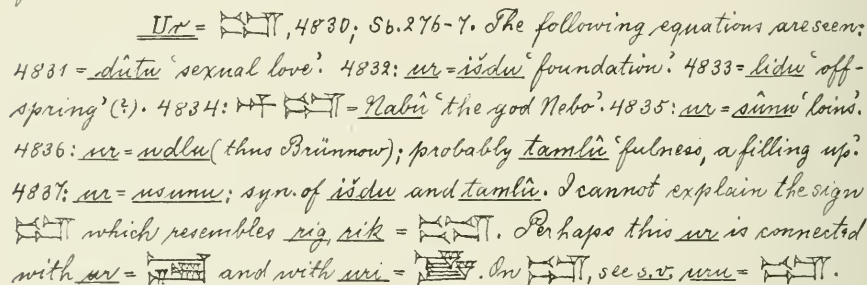 Ur = , 4830; Sb. 276-7. The following equations are seen:
4831 = dûtu ‘sexual love’. 4832: ur = išdu ‘foundation’. 4833 = lidu ‘off-
spring’ (?). 4834: = Nabû ‘the god Nebo’. 4835: ur = sûnu ‘loins’.
4836: ur = udlu (thus Brünnow); probably tamlû ‘fulness, a filling up’.
4837: ur = usunu; syn. of išdu and tamlû. I cannot explain the sign
which resembles rig, rik = . Perhaps this ur is connected
with ur = and with uri = . On , see s.v. uru = .